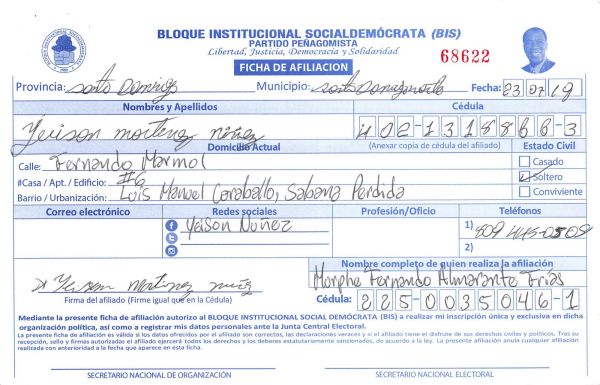 BLOQUE INSTITUCIONAL SOCIALDEMÓCRATA (BIS)
PARTIDO PEÑAGOMISTA
Libertad, Justicia, Democracia y Solidaridad
68622
FICHA DE AFILIACION
Provincia: Santo Domingo Municipio: Santo Domingo Norte Fecha: 23/07/19
Nombres y Apellidos Cédula
Yeison Martinez Núñez 402-1318866-3
(Anexar copia de cédula del afiliado)
Domicilio Actual Estado Civil
Calle: Fernando Marmol Casado
#Casa / Apt. / Edificio: #6 Soltero
Barrio / Urbanización: Luis Manuel Caraballo, Sabana Perdida Conviviente
Correo electrónico Redes sociales Profesión/Oficio Teléfonos
Yeison Nuñez 1) 809 445-0508
2)
Nombre completo de quien realiza la afiliación
Yeison Martinez Morphe Fernando Almarante Frias
Firma del afiliado (Firme igual que en la Cédula) Cédula: 225-0035046-1
Mediante la presente ficha de afiliación autorizo al BLOQUE INSTITUCIONAL SOCIAL DEMÓCRATA (BIS) a realizar mi inscripción única y exclusiva en dicha
organización política, así como a registrar mis datos personales ante la Junta Central Electoral.
La presente ficha de afiliación es válida si los datos ofrecidos por el afiliado son correctos, las declaraciones veraces y si el afiliado tiene el disfrute de sus derechos civiles y políticos. Tras su
recepción, sello y firmas autorizadas el afiliado ejercerá todos los derechos y los deberes estatutariamente sancionados, de acuerdo a la ley. La presente afiliación anula cualquier afiliación
realizada con anterioridad a la fecha que aparece en esta ficha.
SECRETARIO NACIONAL DE ORGANIZACIÓN SECRETARIO NACIONAL ELECTORAL